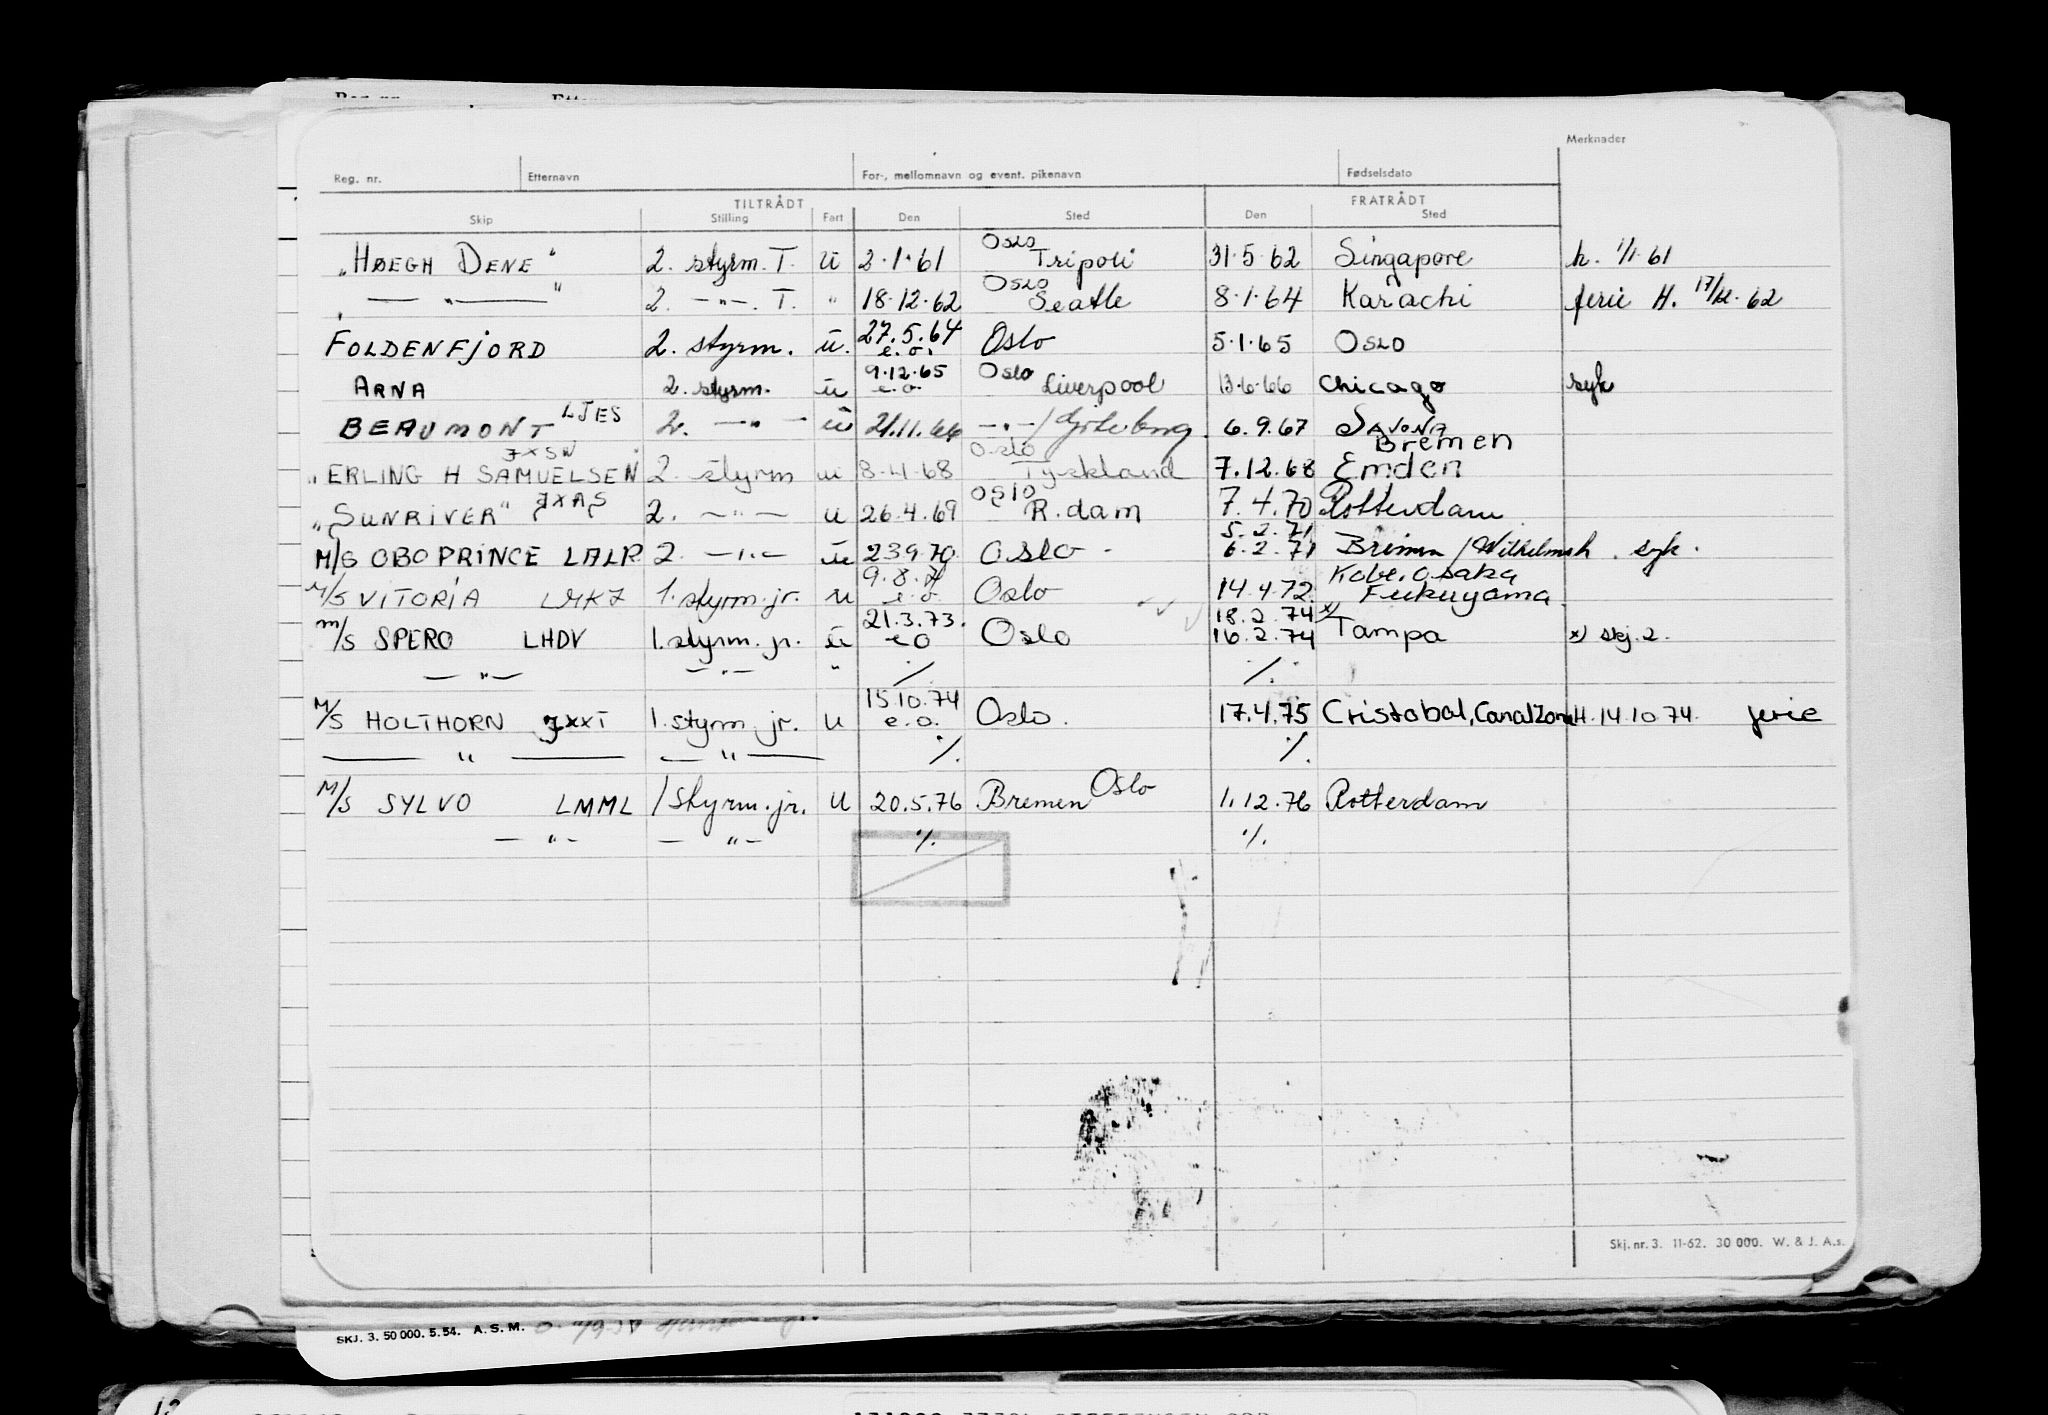 Merknader
Reg. nr. Etternavn For-, mellomnavn og event. pikenavn Fødselsdato
TILTRÅDT FRATRÅDT
Skip Stilling Fart Den Sted Den Sted
Oslo
„HØEGH DENE" 2. styrm. T. u 2·1·61 Tripoli 31·5·62 Singapore h. 1/1·61
Oslo
— " — " 2. —"—. T. " 18·12·62 Seatle 8·1·64 Karachi ferie H. 17/12·62
27.5.64
FOLDENFJORD 2. styrm. u. e.o. Oslo 5·1·65 OSLO
9·12·65 Oslo
ARNA 2. styrm. u e.o. Liverpool 13·6·66 Chicago syk
BEAUMONT LJES 2. —"— u 21.11.66 —"—/Gøteborg. 6.9.67 SAVONA
JXSN Oslo Bremen
„ERLING H SAMUELSEN" 2. styrm u 8·4·68 Tyskland 7.12.68 Emden
OSLO
„SUNRIVER" JXAS 2. —"— u 26.4.69 R.dam 7.4.70 Rotterdam
5.2.71
M/S OBO PRINCE LALR 2. —"— u 23.9.70. OSLO. 6.2.71 Bremen/Wilhelmsh. syk.
9.8.71 Kobe.Osaka
M/S VITORIA LMKJ 1.styrm.jr. u e.o. Oslo 14.4.72. Fukuyama.
21.3.73. 18.2.74 x)
M/S SPERO LHDV 1.styrm.jr. u e o Oslo 16.2.74 Tampa x) skj.2.
— " — — " — " ./. ./.
15.10.74
M/S HOLTHORN JXXT 1.styrm jr. u e.o. Oslo. 17.4.75 Cristobal, CanalZone H.14.10.74. ferie
— " — — " — ./. ./.
M/S SYLVO LMML 1 styrm.jr. u 20.5.76 Bremen Oslo 1.12.76 Rotterdam
— " — — " — ./. ./.
Skj. nr. 3. 11-62. 30 000. W. & J. A.s.
SKJ. 3. 50 000. 5. 54. A. S. M.